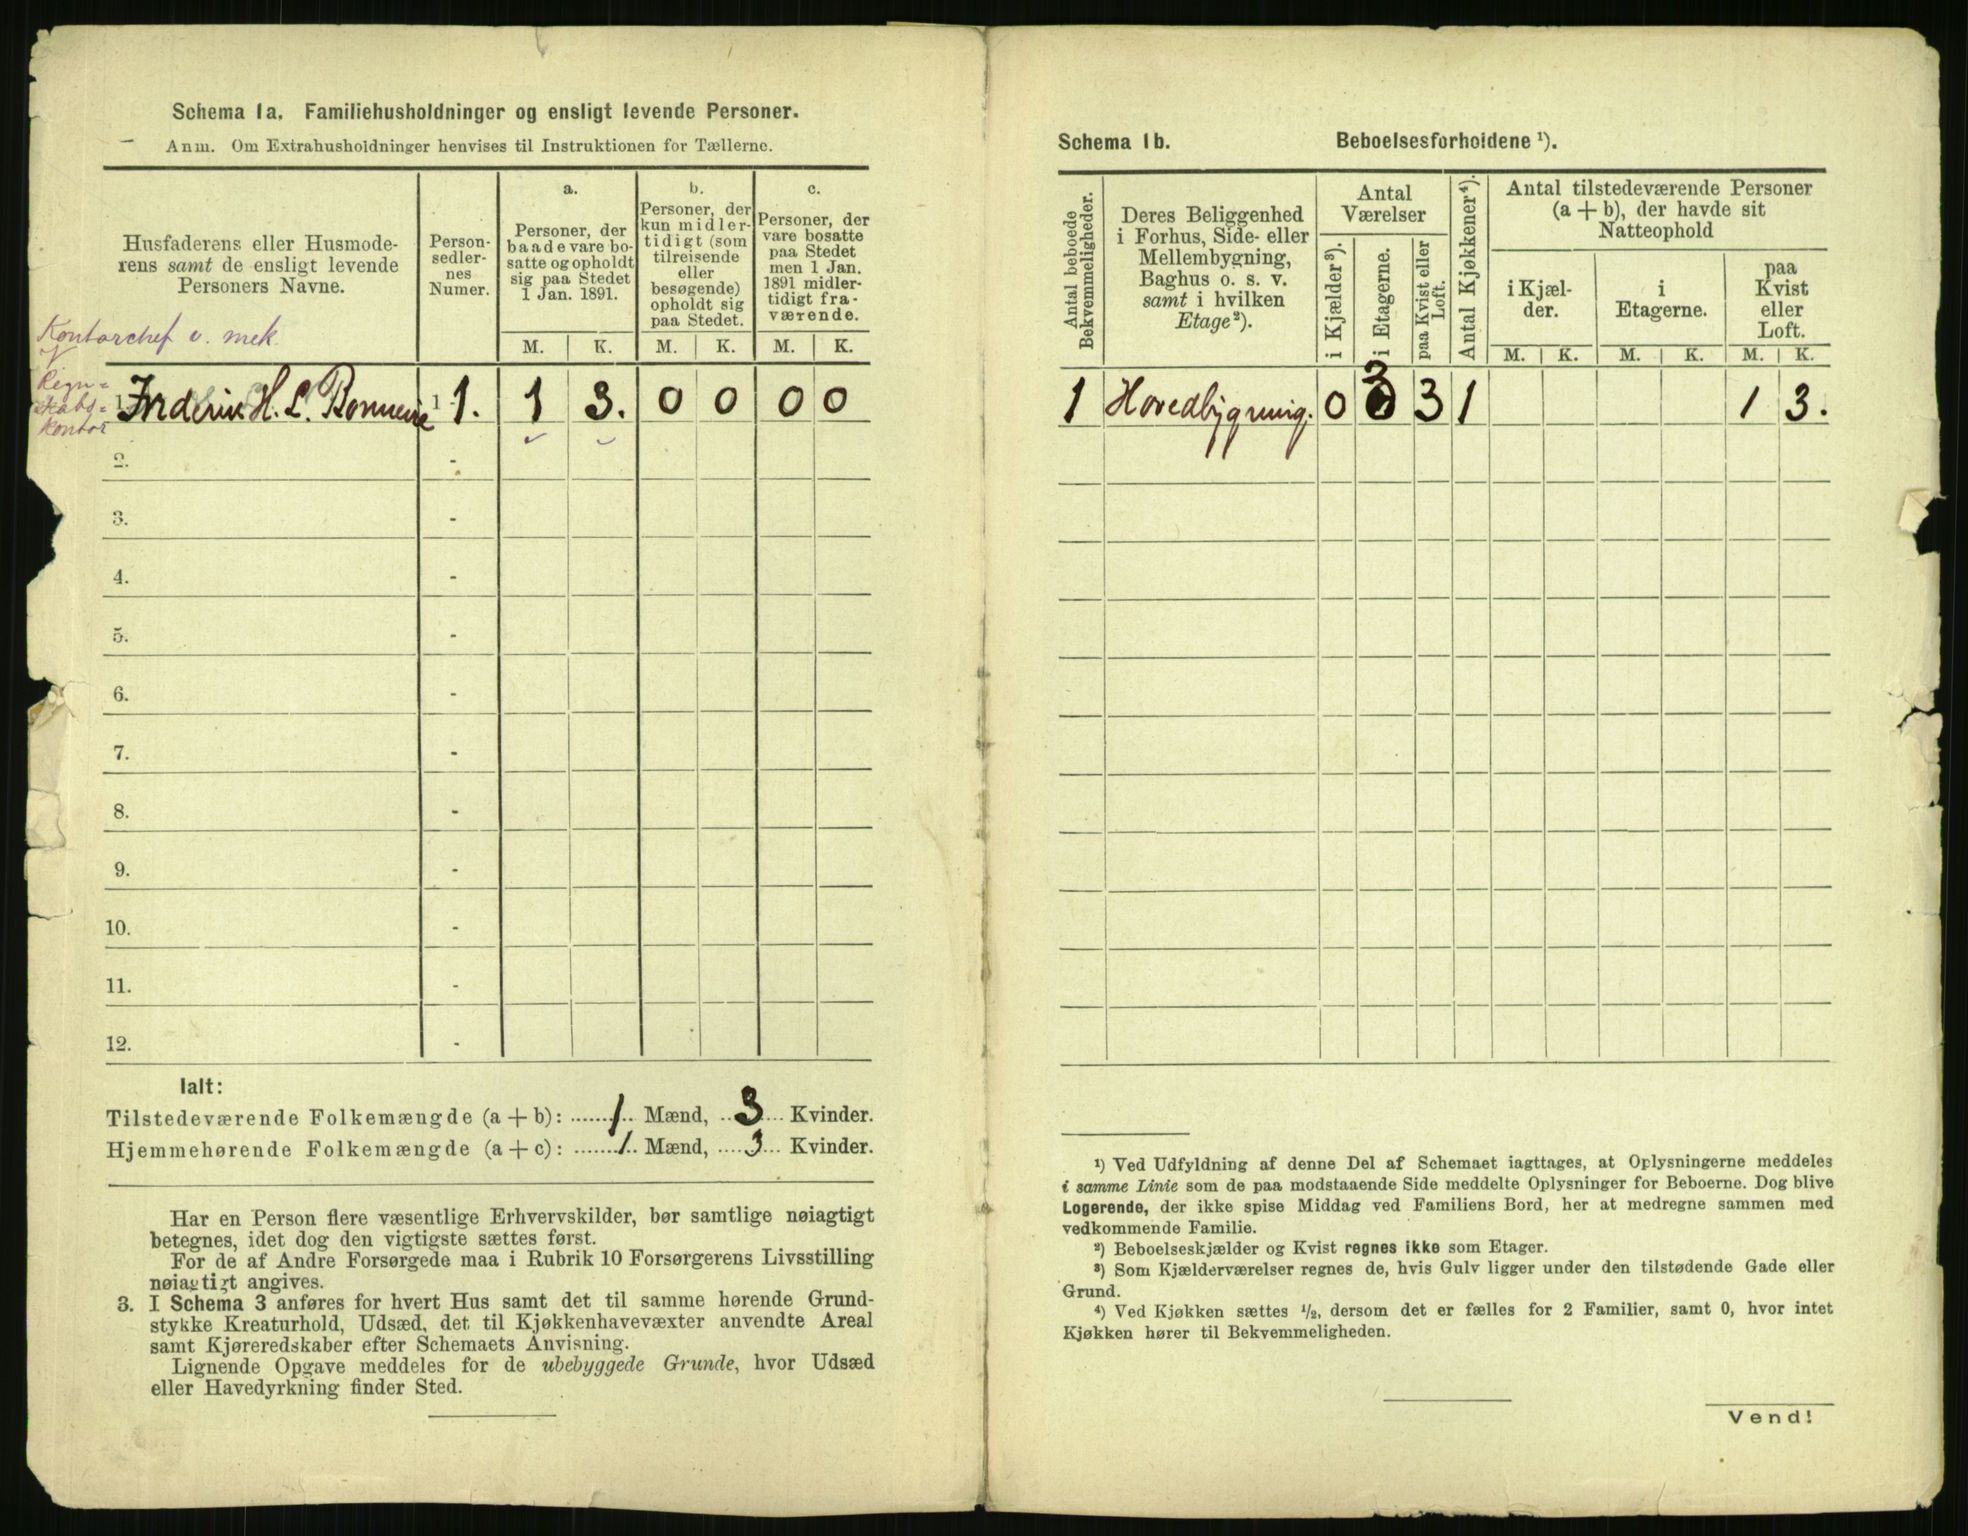 Schema 1a. Familiehusholdninger og ensligt levende Personer.
Anm. Om Extrahusholdninger henvises til Instruktionen for Tællerne.
Husfaderens eller Husmode-
rens samt de ensligt levende
Personers Navne.
Person-
sedler-
nes
Numer.
a.
Personer, der
baade vare bo-
satte og opholdt
sig paa Stedet
1 Jan. 1891.
b.
Personer, der
kun midler-
tidigt (som
tilreisende
eller
besøgende)
opholdt sig
paa Stedet.
c.
Personer, der
vare bosatte
paa Stedet
men 1 Jan.
1891 midler-
tidigt fra-
værende.
M. K. M. K. M. K.
Kontorchef v. mek.
Regn=
skabs=
kontor
1. Frederik H. L. 1 - 1. 1 3. 0 0 0 0
2. -
3. -
4. -
5. -
6. -
7. -
8. -
9. -
10. -
11. -
12. -
Ialt:
Tilstedeværende Folkemængde (a + b): ....... 1 .. Mænd, .. 3 ... Kvinder.
Hjemmehørende Folkemængde (a + c): ....... 1 .. Mænd, .... 3 ... Kvinder.
Har en Person flere væsentlige Erhvervskilder, bør samtlige nøiagtigt
betegnes, idet dog den vigtigste sættes først.
For de af Andre Forsørgede maa i Rubrik 10 Forsørgerens Livsstilling
nøiagtigt angives.
3. I Schema 3 anføres for hvert Hus samt det til samme hørende Grund-
stykke Kreaturhold, Udsæd, det til Kjøkkenhavevæxter anvendte Areal
samt Kjøreredskaber efter Schemaets Anvisning.
Lignende Opgave meddeles for de ubebyggede Grunde, hvor Udsæd
eller Havedyrkning finder Sted.
Schema 1b. Beboelsesforholdene ¹).
Antal beboede
Bekvemmeligheder.
Deres Beliggenhed
i Forhus, Side- eller
Mellembygning,
Baghus o. s. v.
samt i hvilken
Etage²).
Antal
Værelser
i Kjælder³).
i Etagerne.
paa Kvist eller
Loft.
Antal Kjøkkener⁴).
Antal tilstedeværende Personer
(a + b), der havde sit
Natteophold
i Kjæl-
der.
i
Etagerne.
paa
Kvist
eller
Loft.
M. K. M. K. M. K.
1 Hovedbygning. 0 3 3 1 1 3.
¹) Ved Udfyldning af denne Del af Schemaet iagttages, at Oplysningerne meddeles
i samme Linie som de paa modstaaende Side meddelte Oplysninger for Beboerne. Dog blive
Logerende, der ikke spise Middag ved Familiens Bord, her at medregne sammen med
vedkommende Familie.
²) Beboelseskjælder og Kvist regnes ikke som Etager.
³) Som Kjælderværelser regnes de, hvis Gulv ligger under den tilstødende Gade eller
Grund.
⁴) Ved Kjøkken sættes ½, dersom det er fælles for 2 Familier, samt 0, hvor intet
Kjøkken hører til Bekvemmeligheden.
Vend!